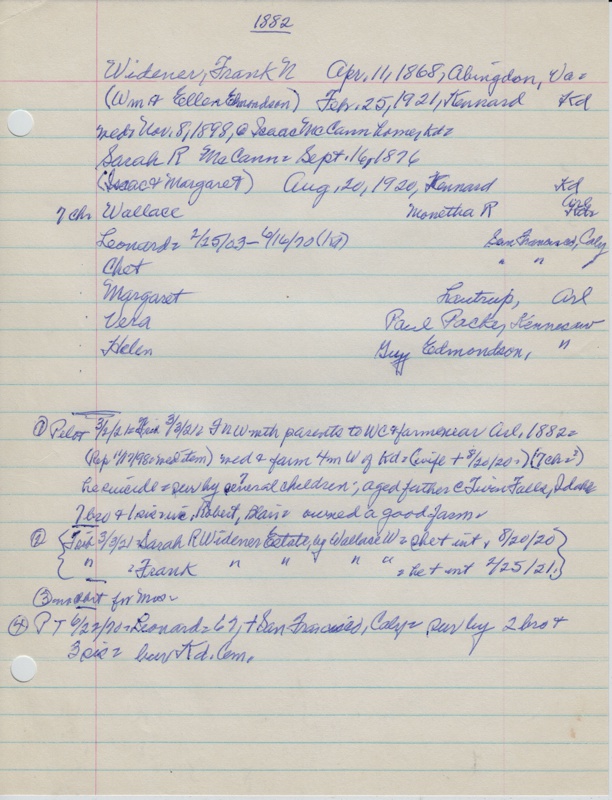 1882
Widener, Frank N Apr. 11, 1868, Abingdon, Va =
(Wm & Ellen Edmondson) Feb. 25, 1921, Kennard Kd
med= Nov. 8, 1898, @ Isaac McCann home, Kd=
Sarah R McCann= Sept. 16, 1876
(Isaac & Margaret) Aug. 20, 1920, Kennard Kd
7 chr Wallace Monetha R
Leonard= 2/25/03- 6/14/70 (Kd) San Francisco, Caly
Chet " "
Margaret Lautrup, Arl
Vera Paul Packe, Kennesaw
Helen Guy Edmondson, "
① Pilot 3/2/21= 3/3/21= In W with parents to WC & farm near Arl, 1882=
med & farm 4m W of Kd= (wife + 8/20/20=) (7 ch=)
he suicide= sur by several children; aged father @ Twin Falls, Idaho
7 bro & 1 sis= Robert, Blair= owned a good farm=
② 3/3/21= Sarah R Widener Estate, by Wallace W= he & int + 8/20/20
" = Frank " " " " = he & int 2/25/21
③ for Mos=
④ PT 6/22/70= Leonard= 67, + San Francisco, Caly= sur by 2 bro &
3 sis= bur Kd. Cem.